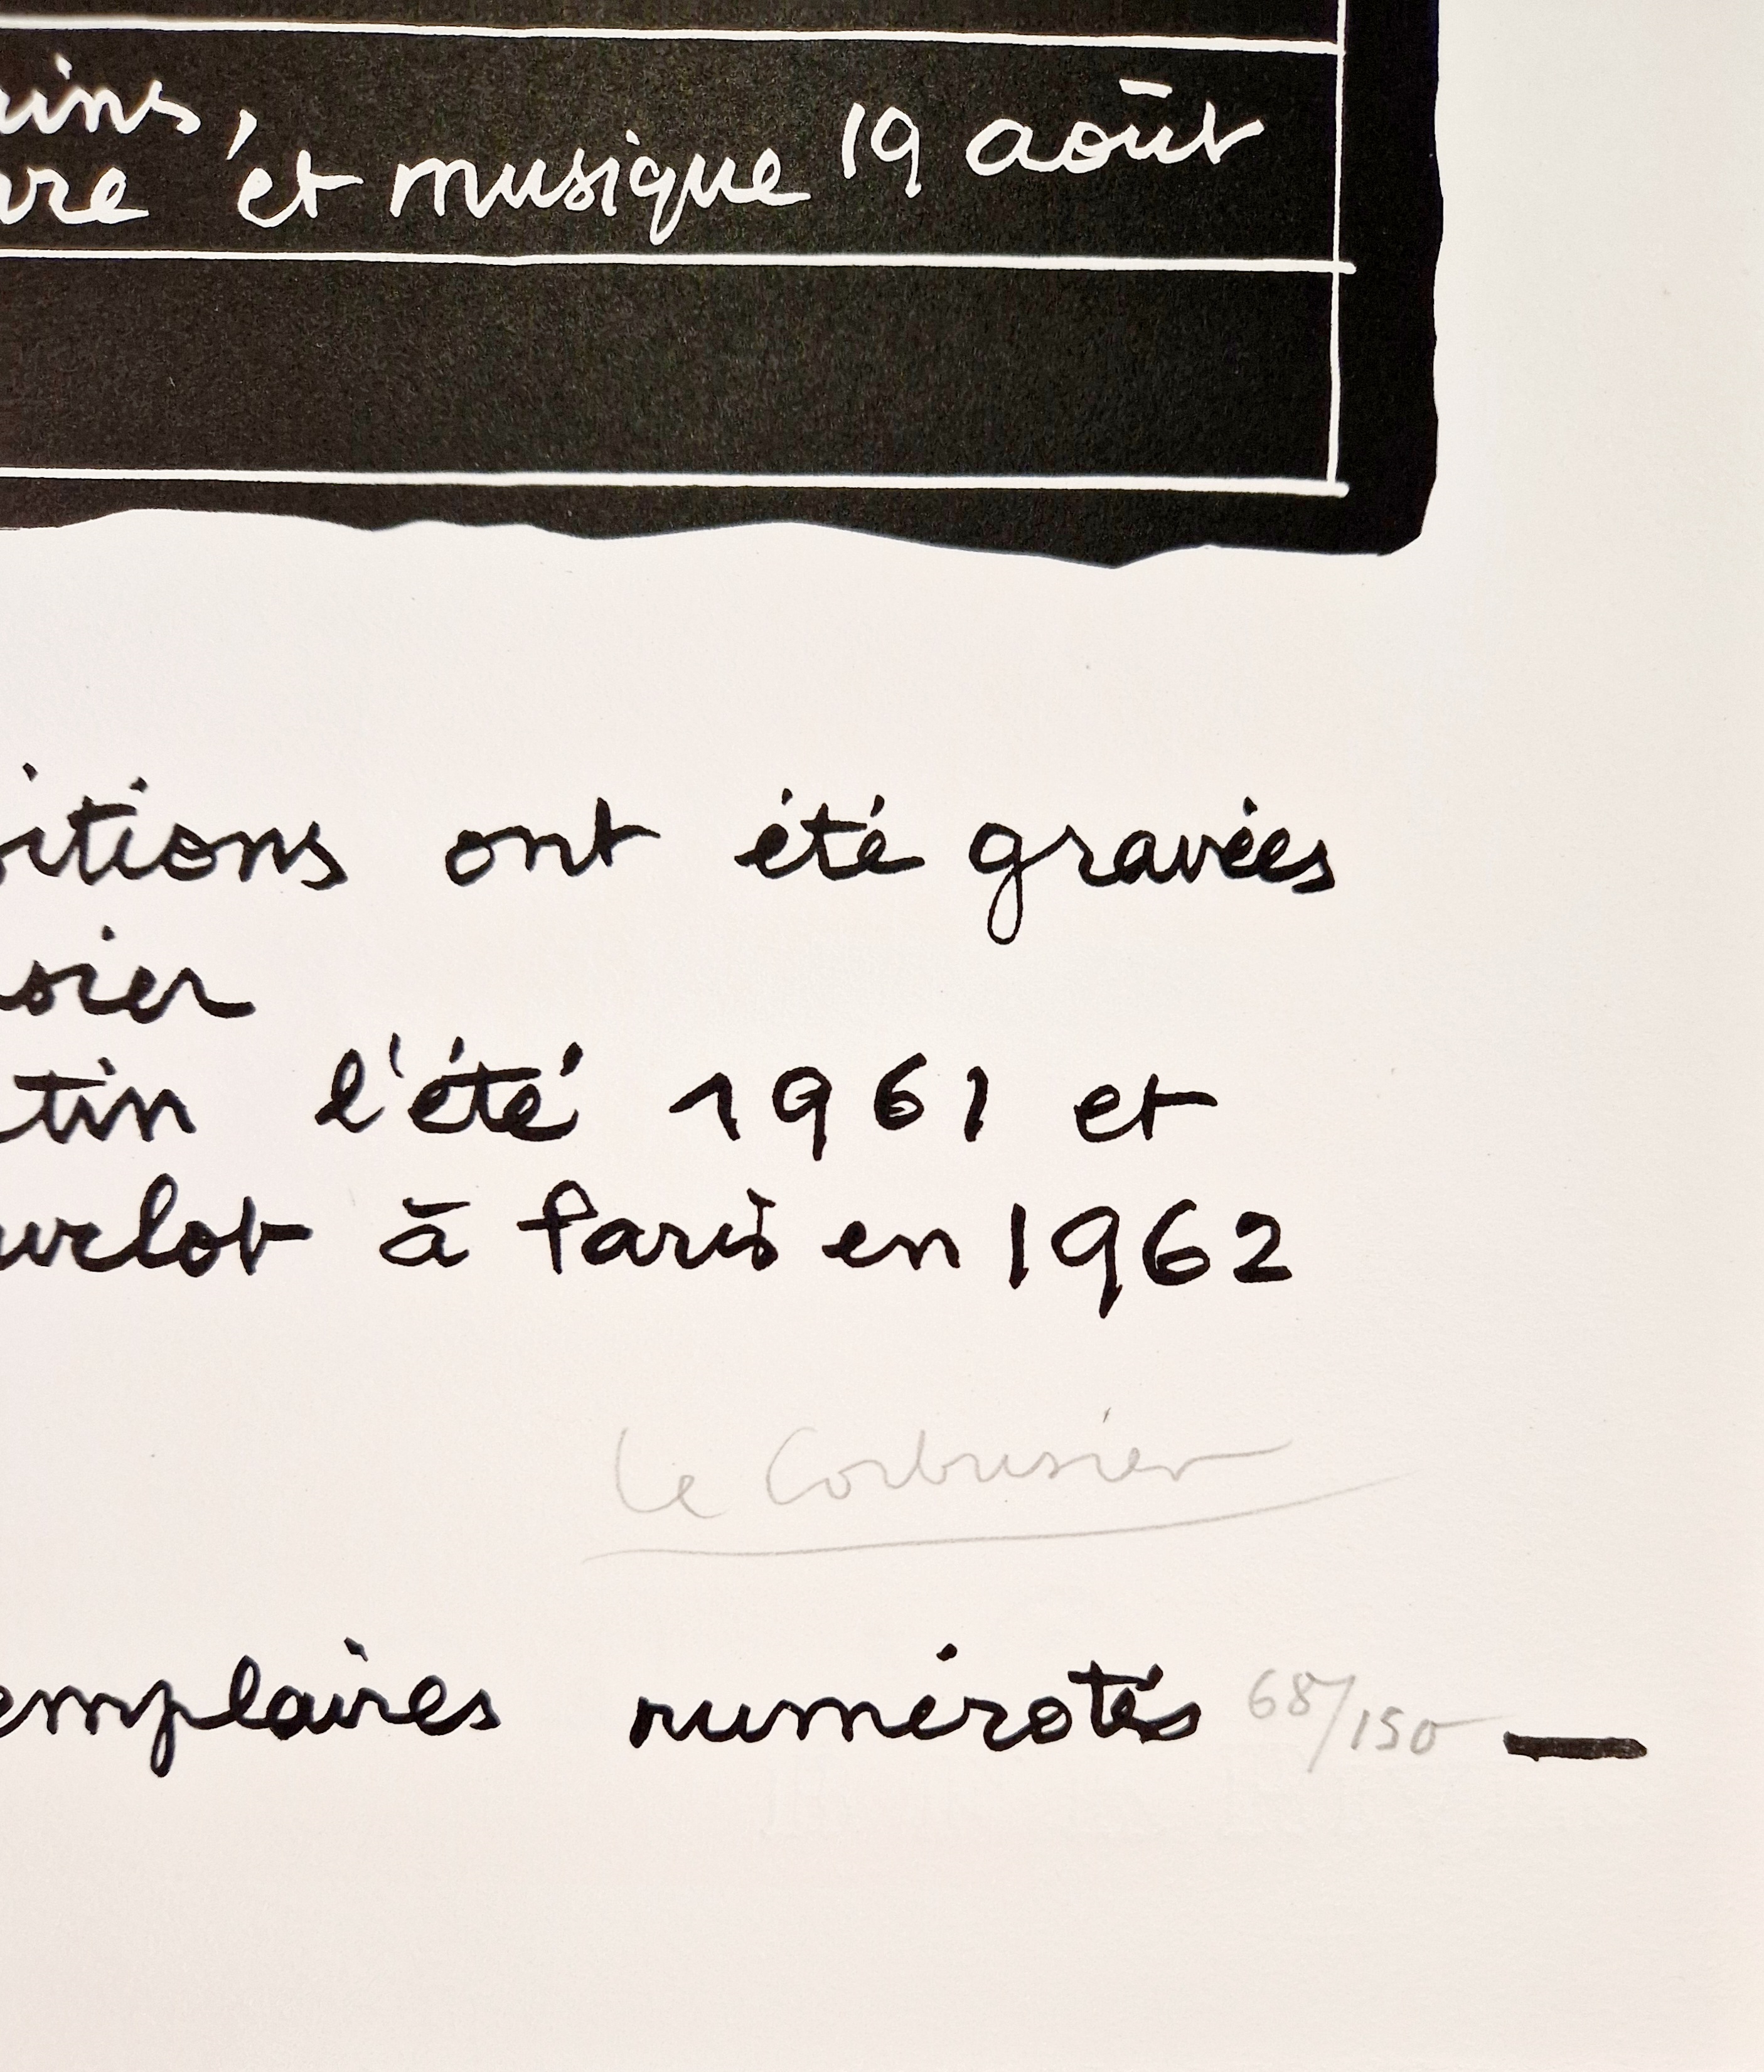 ins,
re et musique 19 août
itions ont été gravées
sier
tin l'été 1961 et
urlot à Paris en 1962
Le Corbusier
emplaires numérotés 68/150 —